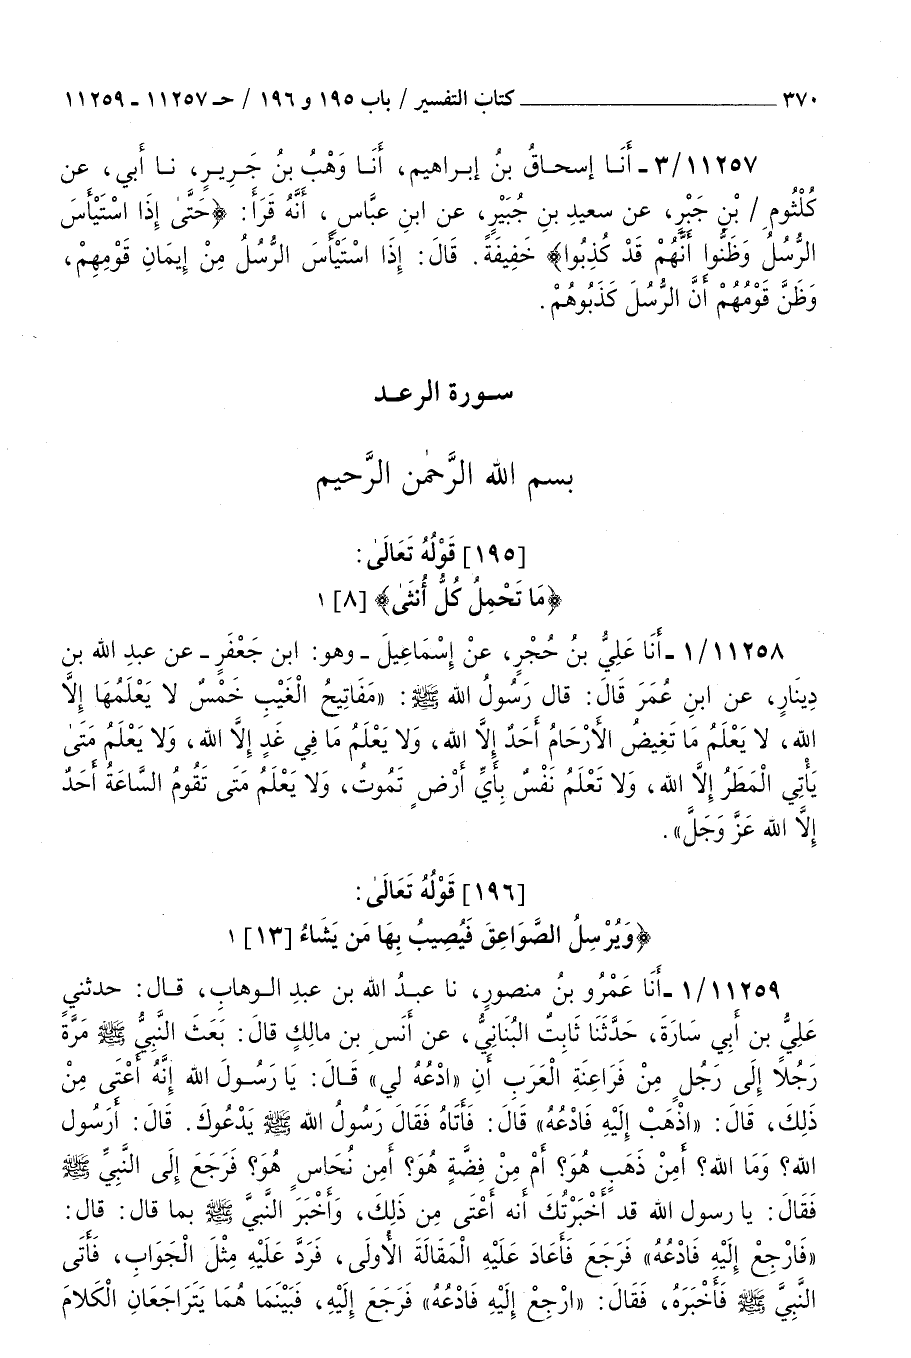 ٣٧٠ ــــــــــــــــــــ كتاب التفسير / باب ١٩٥ و ١٩٦ / حـ ١١٢٥٧ ـ ١١٢٥٩
٣/١١٢٥٧ ـ أَنَـا إسحـاقُ بنُ إبـراهيم، أَنَـا وَهْبُ بنُ جَـريـرٍ، نـا أبي، عن
كُلْثُومِ / بْنِ جَبْرٍ، عن سعيدِ بنِ جُبَيْرٍ، عن ابنِ عبَّاسٍ، أَنَّهُ قَرَأَ: ﴿حَتَّىٰ إِذَا اسْتَيْأَسَ
الرُّسُلُ وَظَنُّوا أَنَّهُمْ قَدْ كُذِبُوا﴾ خَفِيفَةً. قَالَ: إِذَا اسْتَيْأَسَ الرُّسُلُ مِنْ إيمَانِ قَوْمِهِمْ،
وَظَنَّ قَوْمُهُمْ أَنَّ الرُّسُلَ كَذَبُوهُمْ.
سـورة الرعـد
بسم الله الرَّحمٰن الرَّحيم
[١٩٥] قَوْلُهُ تَعَالَىٰ:
﴿مَا تَحْمِلُ كُلُّ أُنثَىٰ﴾ [٨] ١
١/١١٢٥٨ ـ أَنَا عَلِيُّ بنُ حُجْرٍ، عنْ إِسْمَاعِيلَ ـ وهو: ابن جَعْفَرٍ ـ عن عبدِ الله بن
دِينَارٍ، عن ابنِ عُمَرَ قَالَ: قال رَسُولُ الله ﷺ: «مَفَاتِيحُ الْغَيْبِ خَمْسٌ لا يَعْلَمُهَا إِلَّا
الله، لا يَعْلَمُ مَا تَغِيضُ الأَرْحَامُ أَحَدٌ إِلَّا الله، وَلا يَعْلَمُ مَا فِي غَدٍ إِلَّا الله، وَلا يَعْلَمُ مَتَىٰ
يَأْتِي الْمَطَرُ إِلَّا الله، وَلا تَعْلَمُ نَفْسٌ بِأَيِّ أَرْضٍ تَمُوتُ، وَلا يَعْلَمُ مَتَى تَقُومُ السَّاعَةُ أَحَدٌ
إِلَّا الله عَزَّ وَجَلَّ».
[١٩٦] قَوْلُهُ تَعَالَىٰ:
﴿وَيُرْسِلُ الصَّوَاعِقَ فَيُصِيبُ بِهَا مَن يَشَاءُ [١٣] ١
١/١١٢٥٩ ـ أَنَا عَمْرُو بنُ منصورٍ، نا عبـدُ الله بن عبدِ الـوهابِ، قـال: حدثني
عَلِيُّ بن أَبِي سَارَةَ، حَدَّثَنَا ثَابِتٌ البُنَانِيُّ، عن أَنَسِ بن مالِكٍ قَالَ: بَعَثَ النَّبِيُّ ﷺ مَرَّةً
رَجُلًا إِلَى رَجُلٍ مِنْ فَرَاعِنَةِ الْعَرَبِ أَنِ «ادْعُهُ لي» قَـالَ: يَا رَسُـولَ الله إِنَّهُ أَعْتَى مِنْ
ذَلِكَ، قَالَ: «اذْهَبْ إِلَيْهِ فَادْعُهُ» قَالَ: فَأَتَاهُ فَقَالَ رَسُولُ الله ﷺ يَدْعُوكَ. قَالَ: أَرَسُول
الله؟ وَمَا الله؟ أَمِنْ ذَهَبٍ هُوَ؟ أَمْ مِنْ فِضَّةٍ هُوَ؟ أَمِن نُحَاسٍ هُوَ؟ فَرَجَعَ إِلَى النَّبِيِّ ﷺ
فَقَالَ: يا رسول الله قد أَخْبَرْتُكَ أنه أَعْتَى مِن ذَلِكَ، وَأَخْبَرَ النَّبِيَّ ﷺ بما قال: قال:
«فَارْجِعْ إِلَيْهِ فَادْعُهُ» فَرَجَعَ فَأَعَادَ عَلَيْهِ الْمَقَالَةَ الأُولَى، فَرَدَّ عَلَيْهِ مِثْلَ الْجَوَابِ، فَأَتَى
النَّبِيَّ ﷺ فَأَخْبَرَهُ، فَقَالَ: «ارْجِعْ إِلَيْهِ فَادْعُهُ» فَرَجَعَ إِلَيْهِ، فَبَيْنَمَا هُمَا يَتَرَاجَعَانِ الْكَلامَ